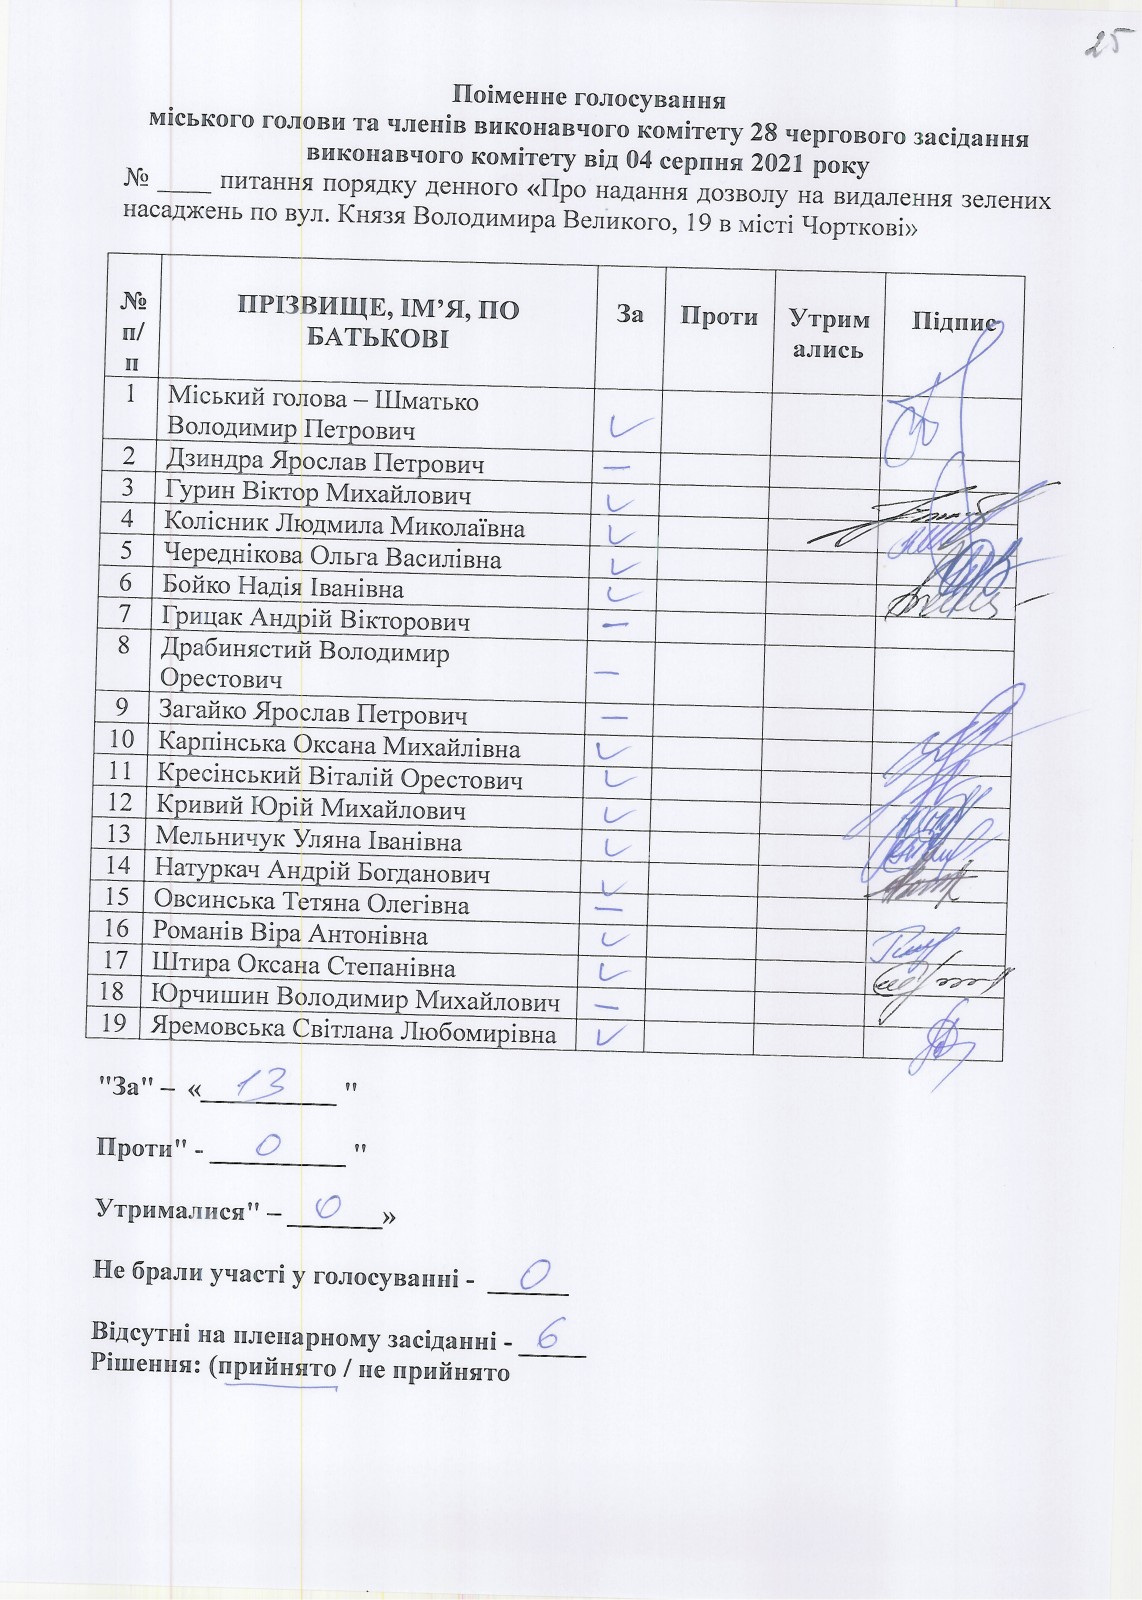 25
Поіменне голосування
міського голови та членів виконавчого комітету 28 чергового засідання
виконавчого комітету від 04 серпня 2021 року
№ ____ питання порядку денного «Про надання дозволу на видалення зелених
насаджень по вул. Князя Володимира Великого, 19 в місті Чорткові»
№ п/п ПРІЗВИЩЕ, ІМ’Я, ПО БАТЬКОВІ За Проти Утримались Підпис
1 Міський голова – Шматько
Володимир Петрович ✓
2 Дзиндра Ярослав Петрович –
3 Гурин Віктор Михайлович ✓
4 Колісник Людмила Миколаївна ✓
5 Череднікова Ольга Василівна ✓
6 Бойко Надія Іванівна ✓
7 Грицак Андрій Вікторович –
8 Драбинястий Володимир
Орестович –
9 Загайко Ярослав Петрович –
10 Карпінська Оксана Михайлівна ✓
11 Кресінський Віталій Орестович ✓
12 Кривий Юрій Михайлович ✓
13 Мельничук Уляна Іванівна ✓
14 Натуркач Андрій Богданович ✓
15 Овсинська Тетяна Олегівна –
16 Романів Віра Антонівна ✓
17 Штира Оксана Степанівна ✓
18 Юрчишин Володимир Михайлович –
19 Яремовська Світлана Любомирівна ✓
"За" – «13 "
Проти" - 0 "
Утрималися" – 0»
Не брали участі у голосуванні - 0
Відсутні на пленарному засіданні - 6
Рішення: (прийнято / не прийнято